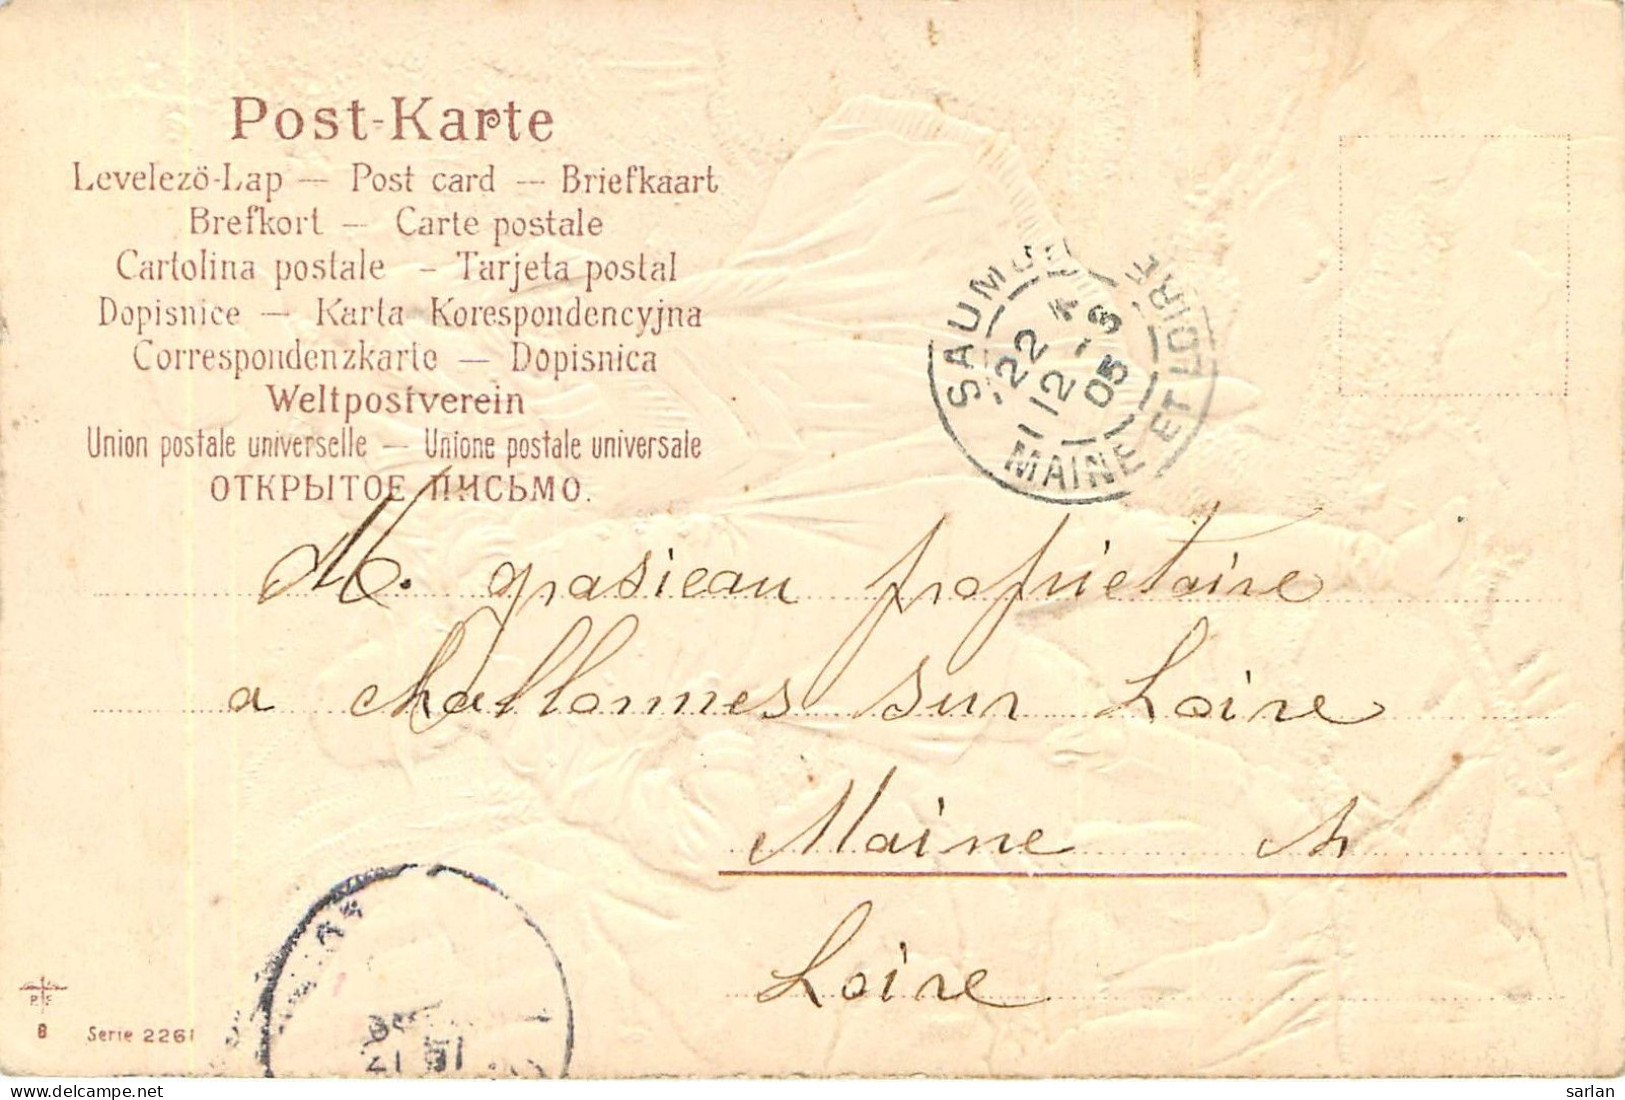 Post-Karte
Levelezö-Lap — Post card — Briefkaart
Brefkort — Carte postale
Cartolina postale – Tarjeta postal
Dopisnice — Karta Korespondencyjna
Correspondenzkarte — Dopisnica
Weltpostverein
Union postale universelle — Unione postale universale
ОТКРЫТОЕ ПИСЬМО.
SAUMUR
22
12 - 3
05
MAINE ET LOIRE
M. grasieau propriétaire
a challonnes sur Loire
Maine
Loire
8 Serie 2261
sarlan